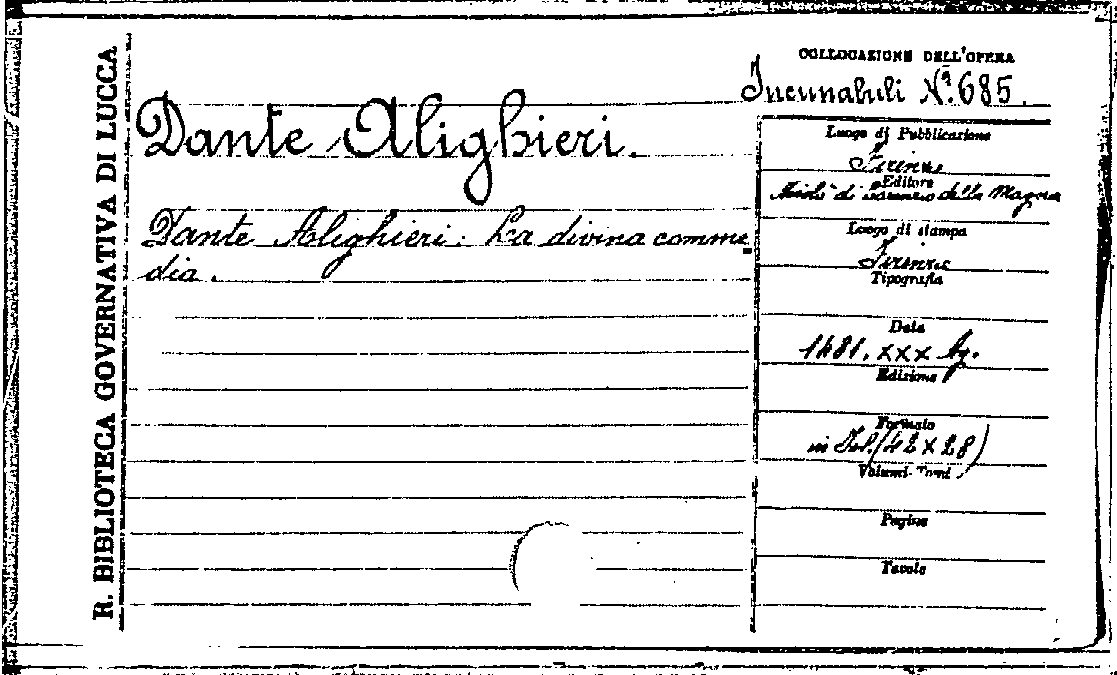 R. BIBLIOTECA GOVERNATIVA DI LUCCA
Dante Alighieri.
Dante Alighieri: La divina comme
dia.
COLLOCAZIONE DELL'OPERA
Incunabuli N.º 685.
Luogo di Pubblicazione
Firenze
Editore
Nicolò di della Magna
Luogo di stampa
Firenze
Tipografia
Data
1481. xxx Ag.
Edizione
Formato
in Fol. (42 x 28)
Volumi-Tomi
Pagine
Tavole